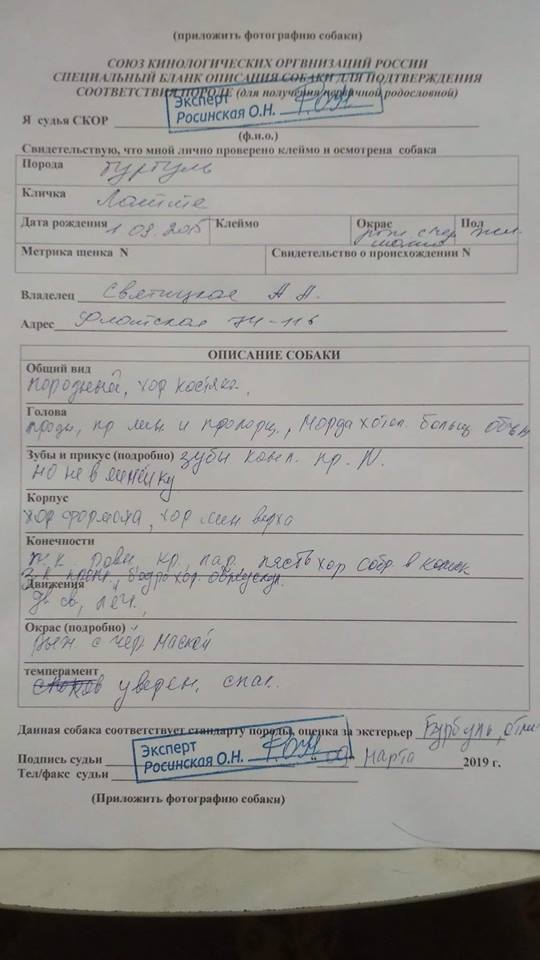 (приложить фотографию собаки)
СОЮЗ КИНОЛОГИЧЕСКИХ ОРГВНИЗАЦИЙ РОССИИ
СПЕЦИАЛЬНЫЙ БЛАНК ОПИСАНИЯ СОБАКИ ДЛЯ ПОДТВЕРЖДЕНИЯ
СООТВЕТСТВИЯ ПОРОДЕ (для получения первичной родословной)
Эксперт
Росинская О.Н.
Я судья СКОР
(ф.и.о.)
Свидетельствую, что мной лично проверено клеймо и осмотрена собака
Порода Бурбуль
Кличка
Дата рождения 1 09. 2015 Клеймо Окрас рыж. с чер маской Пол
Метрика щенка N Свидетельство о происхождении N
Владелец Святицкая А А.
Адрес Флотская 74-116
ОПИСАНИЕ СОБАКИ
Общий вид
породный, хор костяка.
Голова
пр лин. и пропорц., морда больш
Зубы и прикус (подробно) зубы компл. пр. N.
но не в линейку
Корпус
хор формата, хор лин верха
Конечности
п.к. ровн. кр, пар. пясть хор собр в комок
з.к. бедро хор.
Движения
дв св, лёг.,
Окрас (подробно)
рыж. с чер маской
темперамент
уверен. спок.
Данная собака соответствует стандарту породы, оценка за экстерьер Бурбуль, отли
Эксперт
Росинская О.Н.
Подпись судьи " 09 " марта 2019 г.
Тел/факс судьи
(Приложить фотографию собаки)